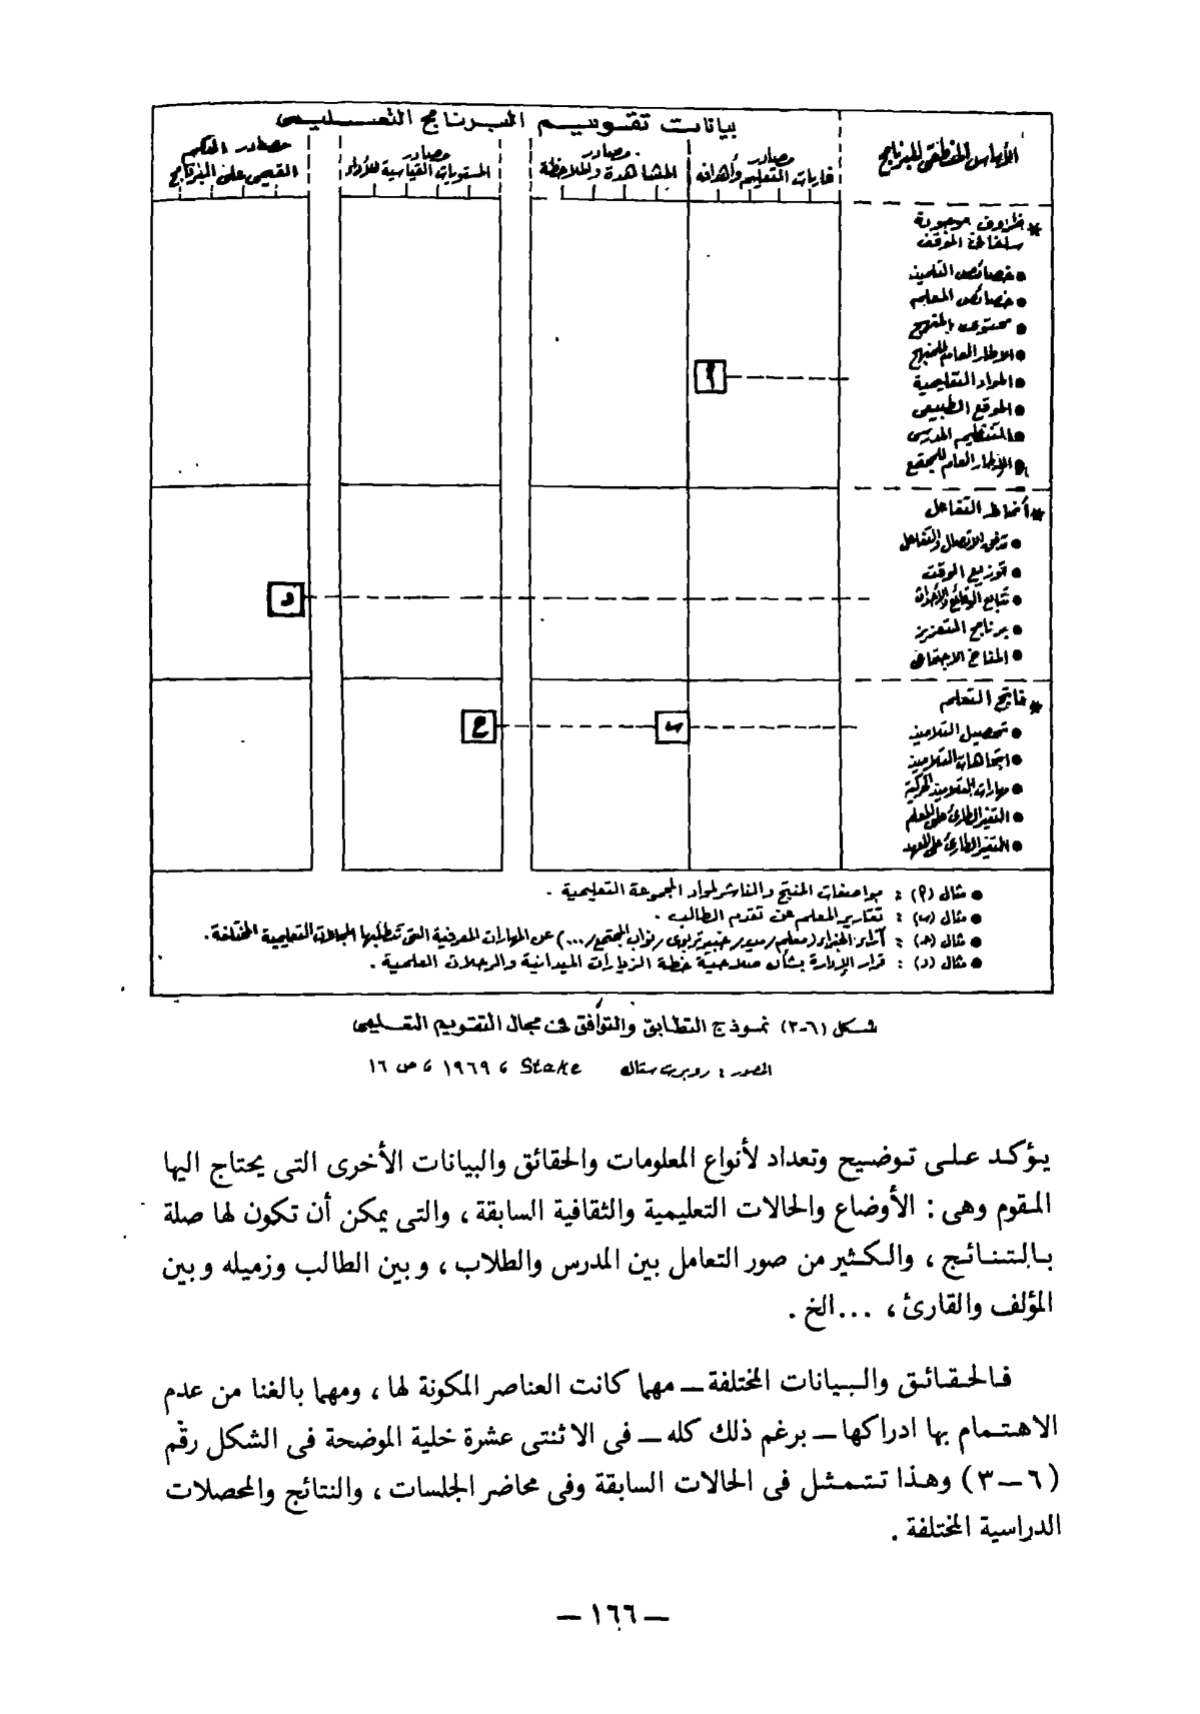 بيانات تقويم البرنامج التعليمى
الأساس المنطقى للبرنامج
مصادر
غايات التعليم وأهدافه
مصادر
المشاهدة والملاحظة
مصادر
المستويات القياسية للأداء
مصادر الحكم
القيمى على البرنامج
* ظروف موجودة
سلفا فى الموقف
● خصائص التلميذ
● خصائص المعلم
● محتويات المنهج
● الاطار العام للمنهج
● المواد التعليمية
● الموقع الطبيعى
● التنظيم المدرسى
● الإطار العام للمجتمع
أ
* أنماط التفاعل
● تدفق الاتصال والتفاعل
● توزيع الوقت
● تتابع الوقائع والأحداث
● برنامج التعزيز
● المناخ الاجتماعى
د
* ناتج التعلم
● تحصيل التلاميذ
● اتجاهات التلاميذ
● مهارات التلاميذ الحركية
● التغير الطارئ على المعلم
● التغير الطارئ على المعهد
ب
ج
● مثال (أ) : مواصفات المنتج والناشر لمواد المجموعة التعليمية .
● مثال (ب) : تقارير المعلم عن تقدم الطالب .
● مثال (جـ) : آراء الخبراء (معلم / مدير / خبير تربوى / نواب المجتمع / ...) عن المهارات المعرفية التى تتطلبها المجالات التعليمية المختلفة .
● مثال (د) : قرار الإدارة بشأن صلاحية خطة الزيارات الميدانية والرحلات العلمية .
شكل (٦-٣) نموذج التطابق والتوافق فى مجال التقويم التعليمى
المصدر : روبرت ستاك Stake ، ١٩٦٩ ، ص ١٦
يؤكد على توضيح وتعداد لأنواع المعلومات والحقائق والبيانات الأخرى التى يحتاج اليها
المقوم وهى : الأوضاع والحالات التعليمية والثقافية السابقة ، والتى يمكن أن تكون لها صلة
بالنتائج ، والكثير من صور التعامل بين المدرس والطلاب ، وبين الطالب وزميله وبين
المؤلف والقارئ ، ... الخ .
فالحقائق والبيانات المختلفة ــ مهما كانت العناصر المكونة لها ، ومهما بالغنا من عدم
الاهتمام بها ادراكها ــ برغم ذلك كله ــ فى الاثنتى عشرة خلية الموضحة فى الشكل رقم
(٦ــ٣) وهذا تتمثل فى الحالات السابقة وفى محاضر الجلسات ، والنتائج والمحصلات
الدراسية المختلفة .
ــ ١٦٦ ــ